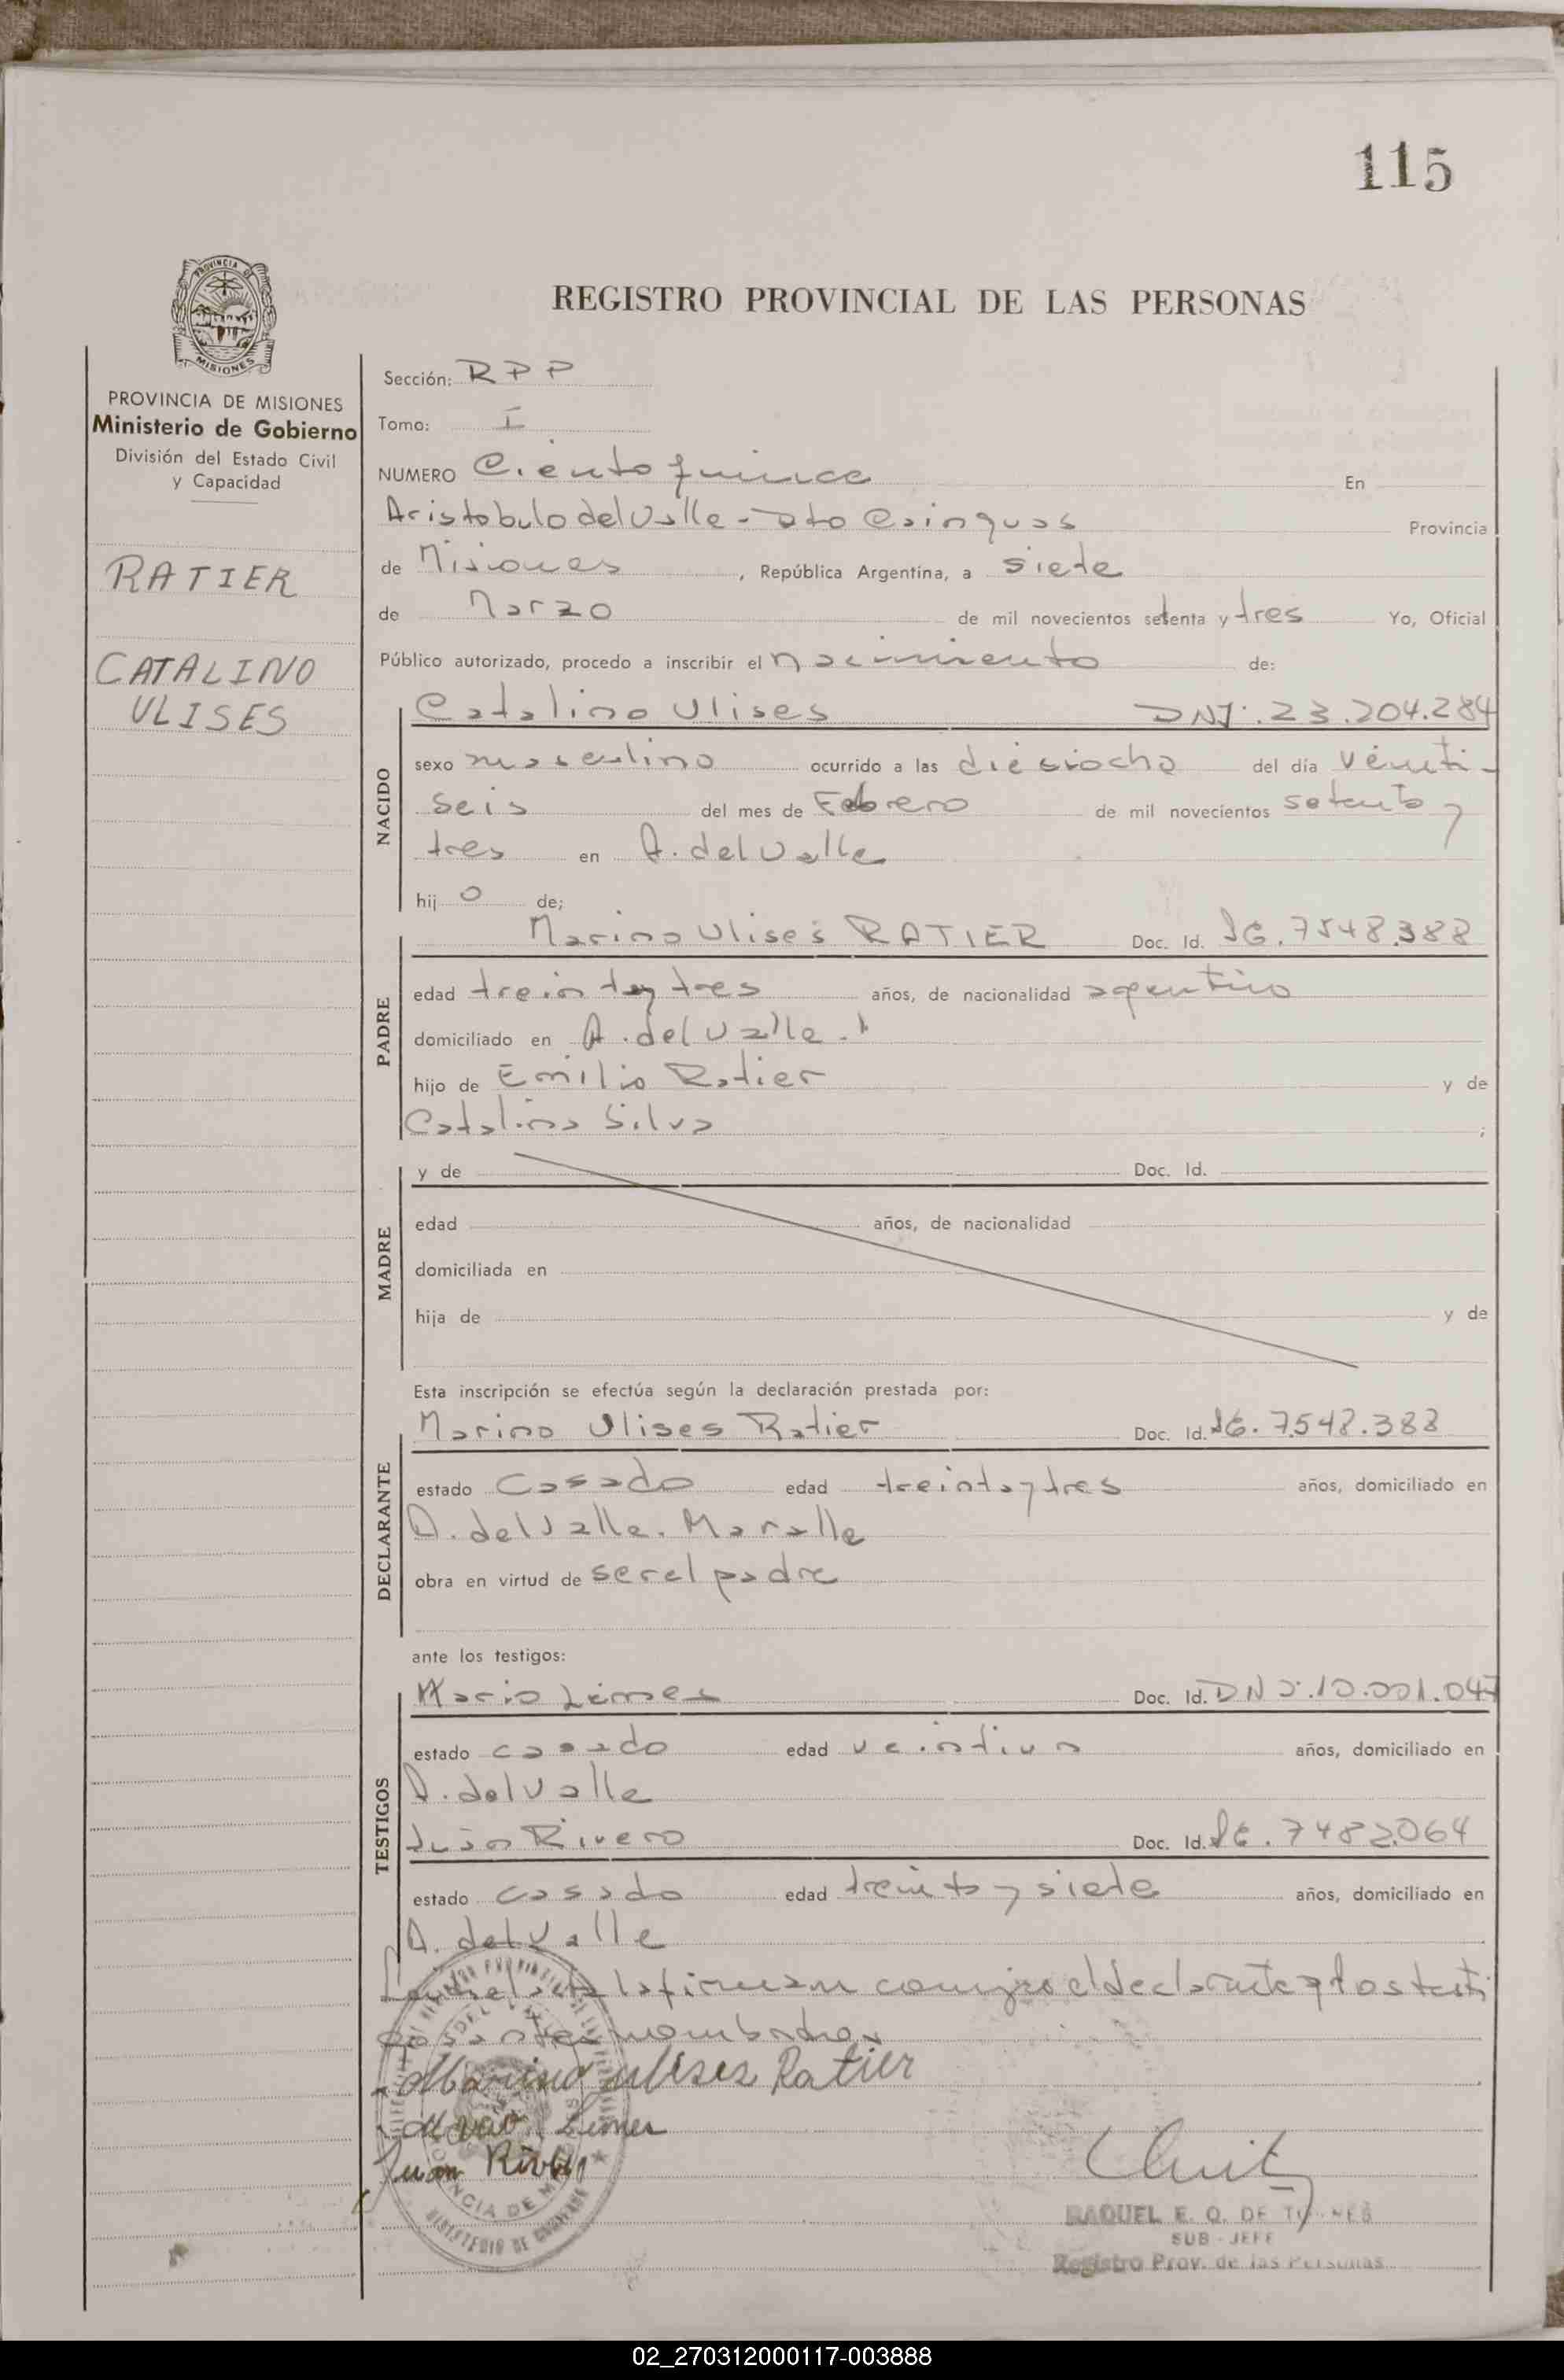 115
REGISTRO PROVINCIAL DE LAS PERSONAS
PROVINCIA DE MISIONES
Ministerio de Gobierno
División del Estado Civil
y Capacidad
RATIER
CATALINO
ULISES
Sección: RPP
Tomo: I
NUMERO Ciento quince En
Aristobulo del Valle - Dto Cainguas Provincia
de Misiones, República Argentina, a siete
de Marzo de mil novecientos setenta y tres Yo, Oficial
Público autorizado, procedo a inscribir el nacimiento de:
NACIDO
Catalino Ulises DNI. 23.204.284
sexo masculino ocurrido a las dieciocho del día veinti-
seis del mes de Febrero de mil novecientos setenta y
tres en A. del Valle
hij o de;
PADRE
Marino Ulises RATIER Doc. Id. LE. 7548.388
edad treinta y tres años, de nacionalidad argentino
domiciliado en A. del Valle.
hijo de Emilio Ratier y de
Catalina Silva ;
MADRE
y de Doc. Id.
edad años, de nacionalidad
domiciliada en
hija de y de
Esta inscripción se efectúa según la declaración prestada por:
DECLARANTE
Marino Ulises Ratier Doc. Id. LE. 7.548.388
estado casado edad treinta y tres años, domiciliado en
A. del Valle.
obra en virtud de ser el padre
ante los testigos:
TESTIGOS
Mario Limes Doc. Id. DNI. 10.001.047
estado casado edad veintiun años, domiciliado en
A. del Valle
Juan Rivero Doc. Id. LE. 7482.064
estado casado edad treinta y siete años, domiciliado en
A. del Valle
la firman conmigo el declarante y los testi
gos antes nombrados
Marino Ulises Ratier
Mario Limes
Juan Rivero
RAQUEL E. Q. DE
SUB-JEFE
Registro Prov. de las Personas
02_270312000117-003888